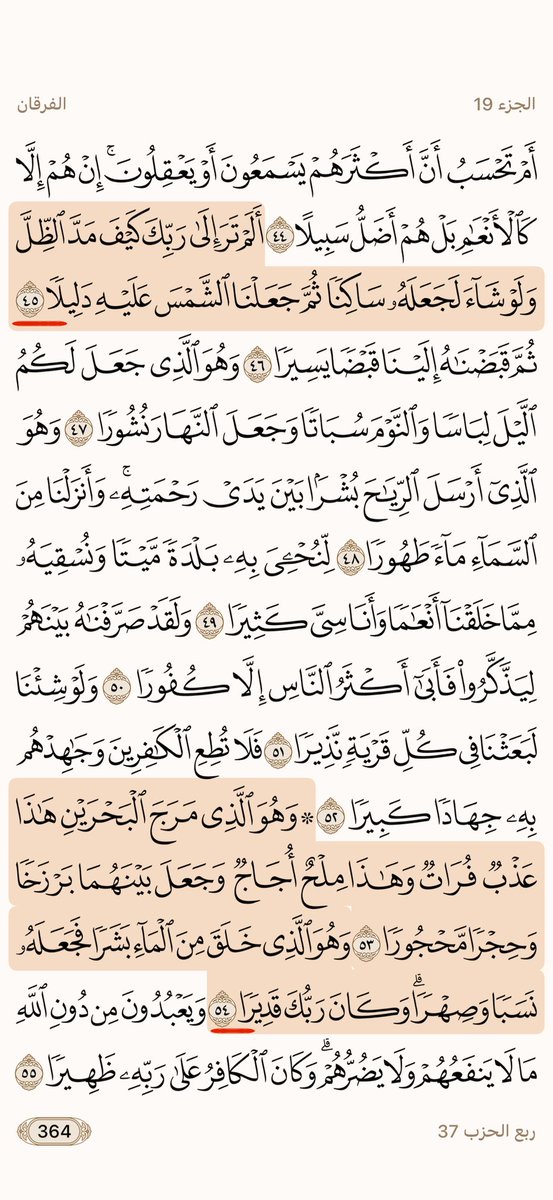 الجزء 19
الفرقان
أَمْ تَحْسَبُ أَنَّ أَكْثَرَهُمْ يَسْمَعُونَ أَوْ يَعْقِلُونَ ۚ إِنْ هُمْ إِلَّا
كَٱلْأَنْعَٰمِ بَلْ هُمْ أَضَلُّ سَبِيلًا ٤٤ أَلَمْ تَرَ إِلَىٰ رَبِّكَ كَيْفَ مَدَّ ٱلظِّلَّ
وَلَوْ شَآءَ لَجَعَلَهُۥ سَاكِنًا ثُمَّ جَعَلْنَا ٱلشَّمْسَ عَلَيْهِ دَلِيلًا ٤٥
ثُمَّ قَبَضْنَٰهُ إِلَيْنَا قَبْضًا يَسِيرًا ٤٦ وَهُوَ ٱلَّذِى جَعَلَ لَكُمُ
ٱلَّيْلَ لِبَاسًا وَٱلنَّوْمَ سُبَاتًا وَجَعَلَ ٱلنَّهَارَ نُشُورًا ٤٧ وَهُوَ
ٱلَّذِىٓ أَرْسَلَ ٱلرِّيَٰحَ بُشْرًۢا بَيْنَ يَدَىْ رَحْمَتِهِۦ ۚ وَأَنزَلْنَا مِنَ
ٱلسَّمَآءِ مَآءً طَهُورًا ٤٨ لِّنُحْـِۧىَ بِهِۦ بَلْدَةً مَّيْتًا وَنُسْقِيَهُۥ
مِمَّا خَلَقْنَآ أَنْعَٰمًا وَأَنَاسِىَّ كَثِيرًا ٤٩ وَلَقَدْ صَرَّفْنَٰهُ بَيْنَهُمْ
لِيَذَّكَّرُوا۟ فَأَبَىٰٓ أَكْثَرُ ٱلنَّاسِ إِلَّا كُفُورًا ٥٠ وَلَوْ شِئْنَا
لَبَعَثْنَا فِى كُلِّ قَرْيَةٍ نَّذِيرًا ٥١ فَلَا تُطِعِ ٱلْكَٰفِرِينَ وَجَٰهِدْهُم
بِهِۦ جِهَادًا كَبِيرًا ٥٢ * وَهُوَ ٱلَّذِى مَرَجَ ٱلْبَحْرَيْنِ هَٰذَا
عَذْبٌ فُرَاتٌ وَهَٰذَا مِلْحٌ أُجَاجٌ وَجَعَلَ بَيْنَهُمَا بَرْزَخًا
وَحِجْرًا مَّحْجُورًا ٥٣ وَهُوَ ٱلَّذِى خَلَقَ مِنَ ٱلْمَآءِ بَشَرًا فَجَعَلَهُۥ
نَسَبًا وَصِهْرًا ۗ وَكَانَ رَبُّكَ قَدِيرًا ٥٤ وَيَعْبُدُونَ مِن دُونِ ٱللَّهِ
مَا لَا يَنفَعُهُمْ وَلَا يَضُرُّهُمْ ۗ وَكَانَ ٱلْكَافِرُ عَلَىٰ رَبِّهِۦ ظَهِيرًا ٥٥
ربع الحزب 37
364